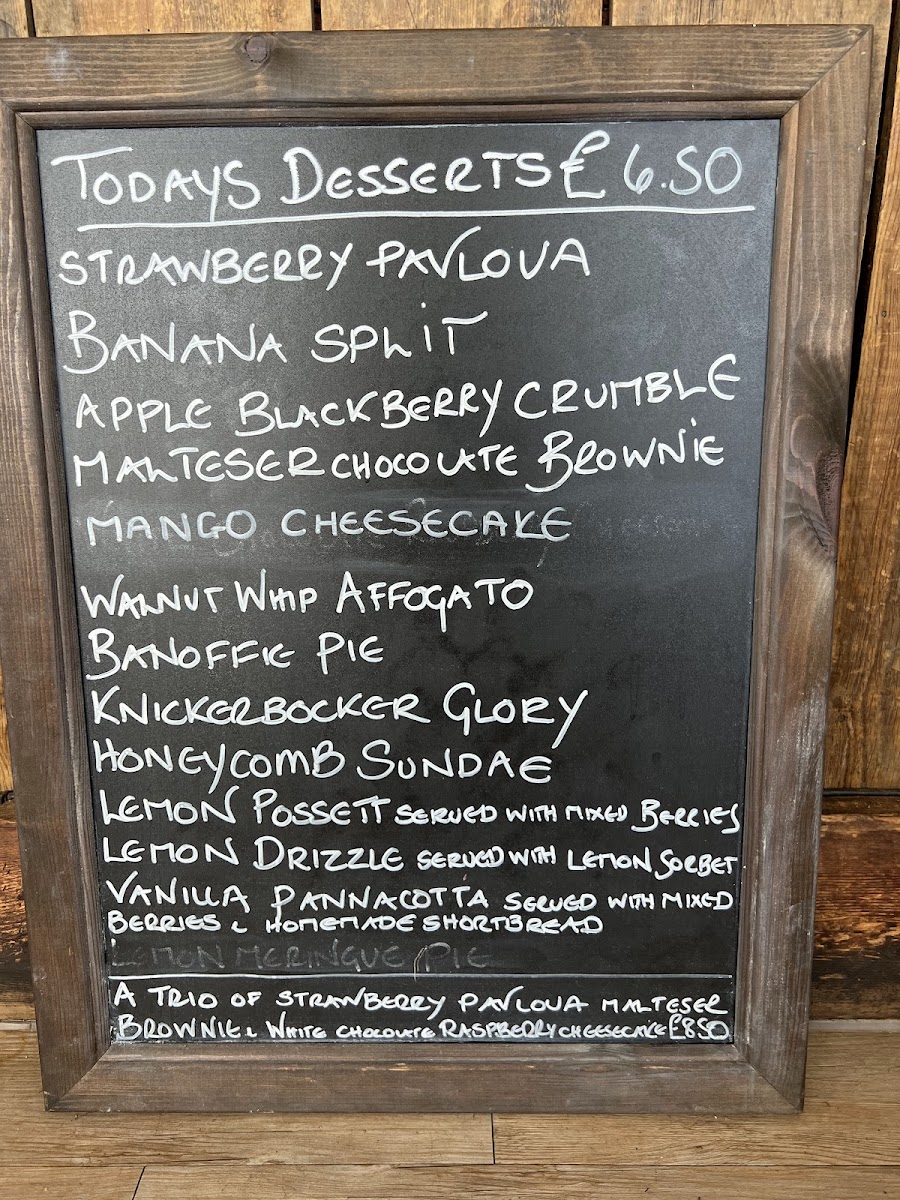 TODAYS DESSERTS £ 6.50
STRAWBERRY PAVLOVA
BANANA SPLIT
APPLE BLACKBERRY CRUMBLE
MALTESER CHOCOLATE BROWNIE
MANGO CHEESECAKE
WALNUT WHIP AFFOGATO
BANOFFIE PIE
KNICKERBOCKER GLORY
HONEYCOMB SUNDAE
LEMON POSSETT SERVED WITH MIXED BERRIES
LEMON DRIZZLE SERVED WITH LEMON SORBET
VANILLA PANNACOTTA SERVED WITH MIXED
BERRIES & HOMEMADE SHORTBREAD
LEMON MERINGUE PIE
A TRIO OF STRAWBERRY PAVLOVA MALTESER
BROWNIE & WHITE CHOCOLATE RASPBERRY CHEESECAKE £8.50